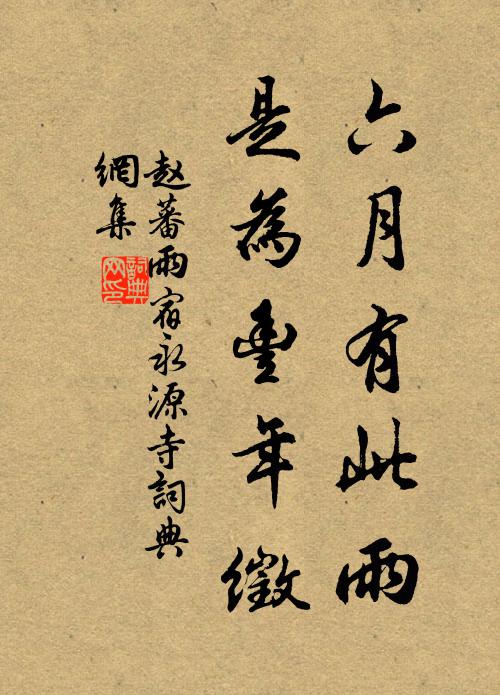 六月有此雨
是為豐年徵
赵蕃雨宿永源寺詞典
網集
詞典網印